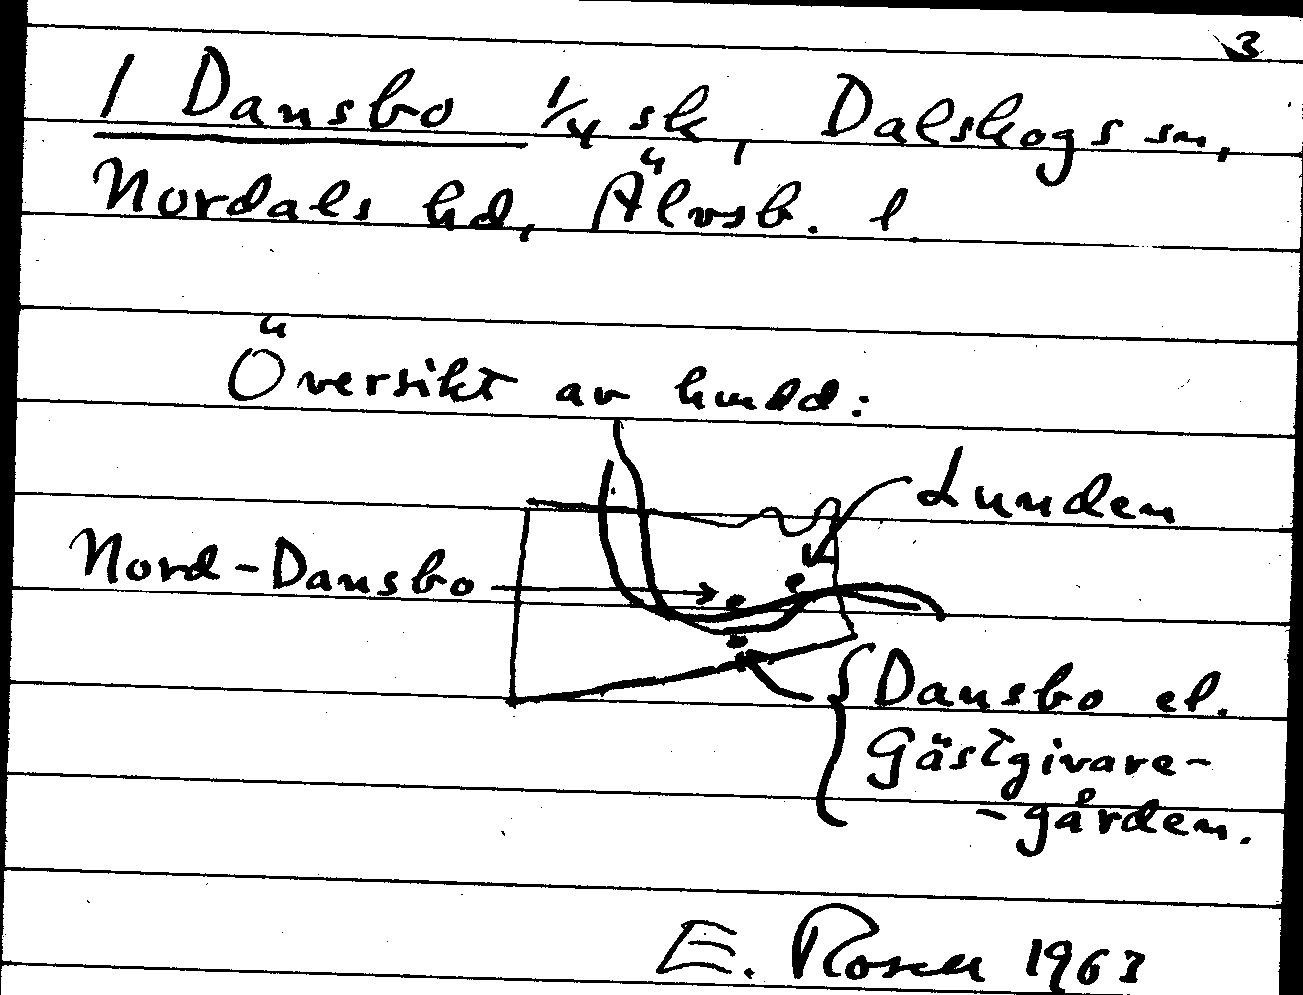 3
1 Dansbo 1/4 sk, Dalskogs sn,
Nordals hd, Älvsb. l.
Översikt av hmdd:
Lunden
Nord-Dansbo
Dansbo el.
Gästgivare-
-gården.
E. Rosen 1963